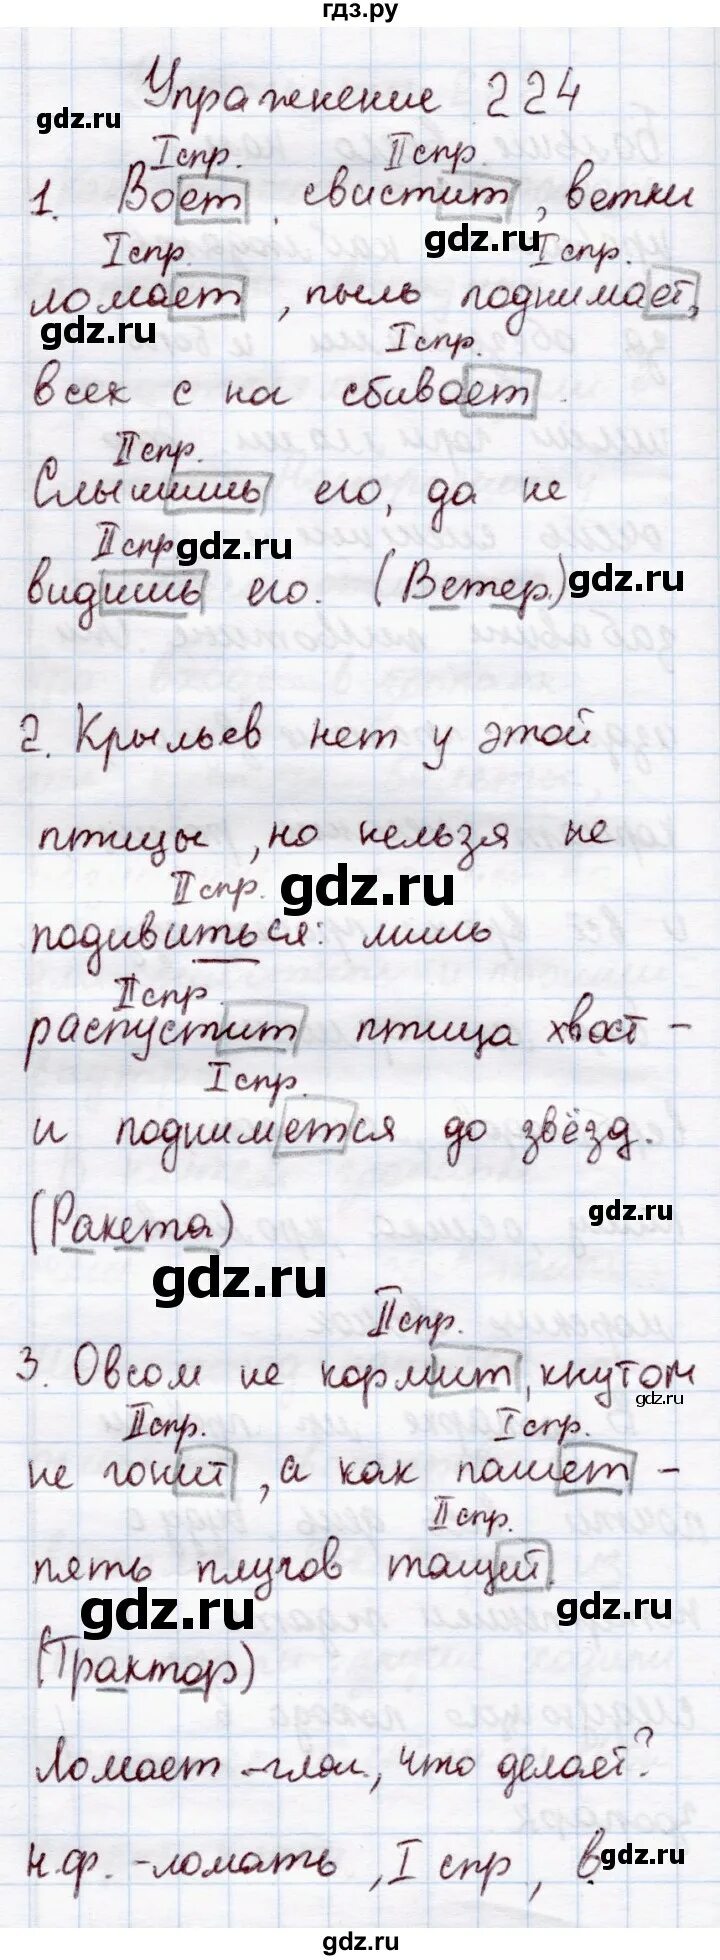 гдз.ру
Упражнение 224
gdz.ru
I спр. II спр.
1. Воет, свистит, ветки
gdz.ru
I спр. I спр.
ломает, пыль поднимает,
gdz.ru
I спр.
всех с ног сбивает.
II спр.
Слышишь его, да не
II спр. gdz.ru
видишь его. (Ветер.)
gdz.ru
2. Крыльев нет у этой
птицы, но нельзя не
II спр. gdz.ru
подивиться: лишь
II спр.
распустит птица хвост –
I спр.
и поднимется до звёзд.
(Ракета)
gdz.ru
gdz.ru
II спр.
3. Овсом не кормит, кнутом
gdz.ru
II спр. I спр.
не гонит, а как пашет –
II спр.
пять плугов тащит.
gdz.ru
gdz.ru
(Трактор)
Ломает – глаг., что делает?
н.ф. – ломать, I спр, в
gdz.ru
gdz.ru